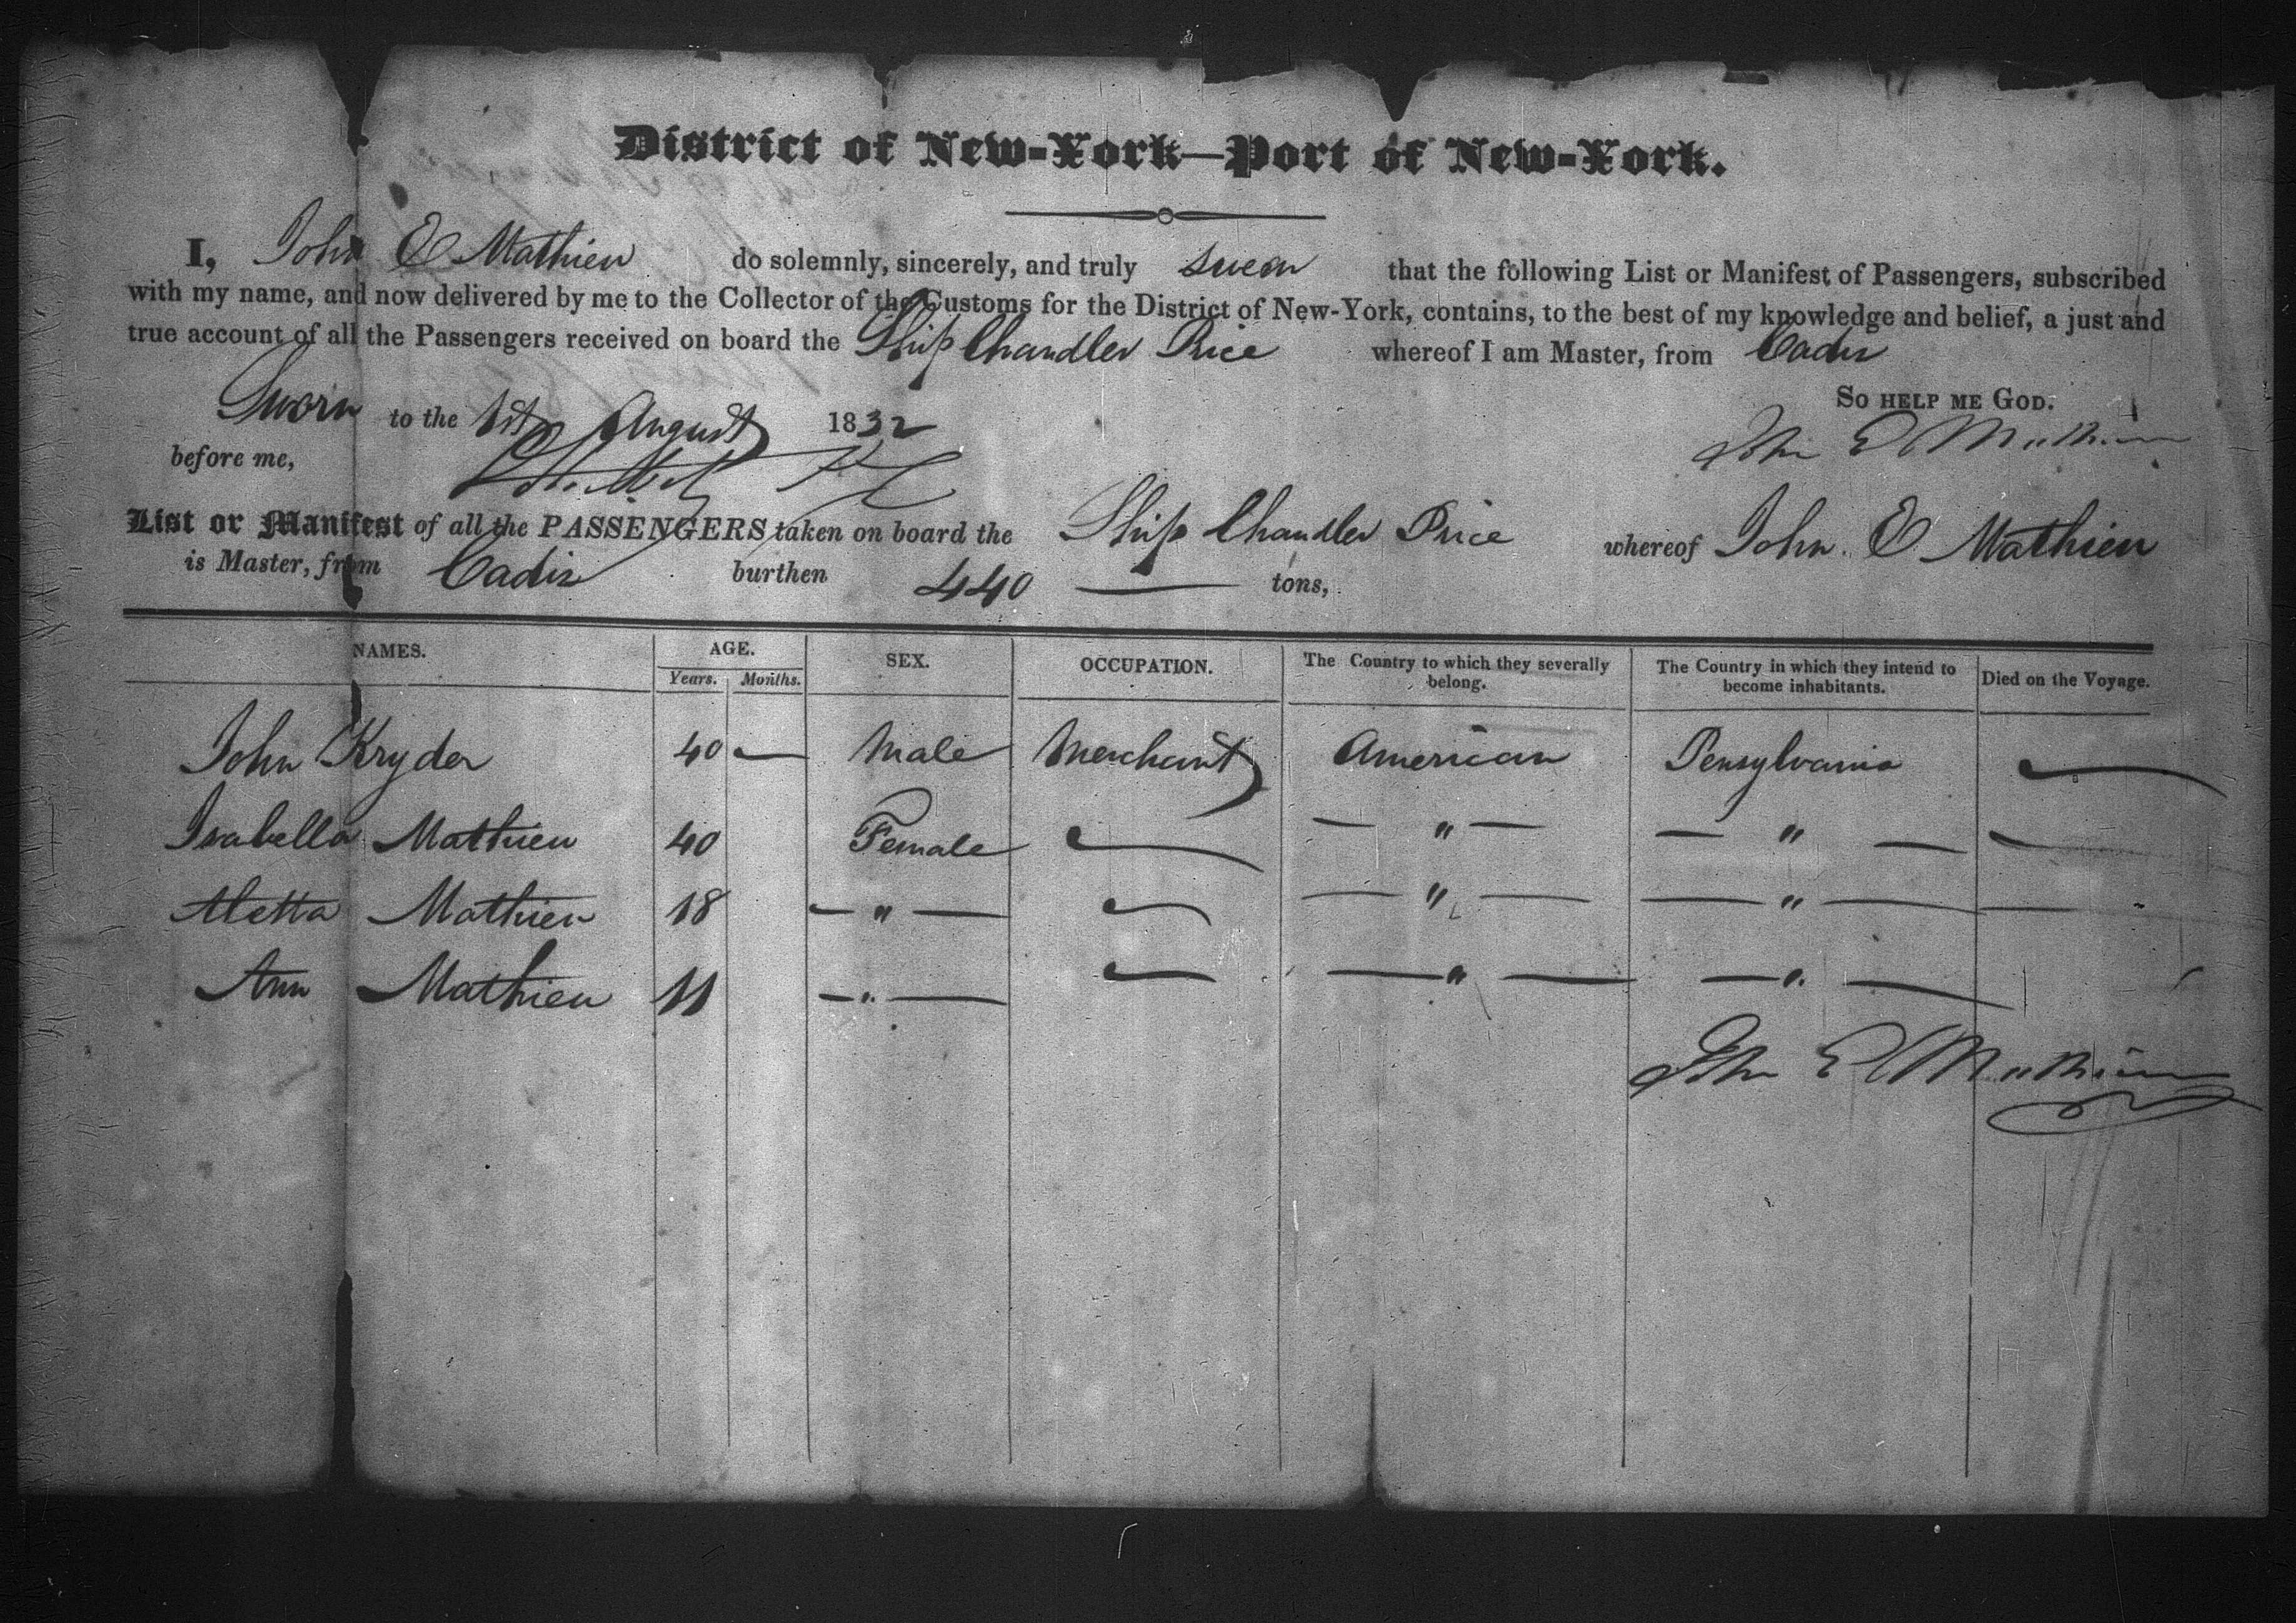 District of New-York—Port of New-York.
I, John E Mathieu do solemnly, sincerely, and truly swear that the following List or Manifest of Passengers, subscribed
with my name, and now delivered by me to the Collector of the Customs for the District of New-York, contains, to the best of my knowledge and belief, a just and
true account of all the Passengers received on board the Ship Chandler Price whereof I am Master, from Cadiz
So help me God.
Sworn to the 1st August 1832
John E Mathieu
before me,
List or Manifest of all the PASSENGERS taken on board the Ship Chandler Price whereof John E Mathieu
is Master, from Cadiz burthen 440 — tons,
NAMES. AGE. SEX. OCCUPATION. The Country to which they severally belong. The Country in which they intend to become inhabitants. Died on the Voyage.
Years. Months.
John Kryder 40 — Male Merchant American Pensylvania —
Isabella Mathieu 40 Female — — " — — " — —
Aletta Mathieu 18 — " — — — " — — " — —
Ann Mathieu 11 — " — — — " — — " —
John E Mathieu